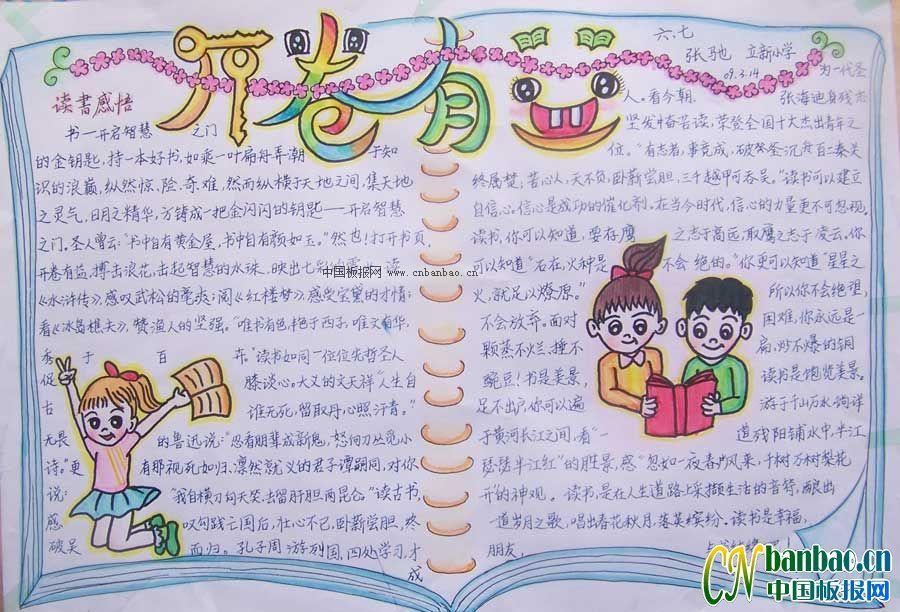 开卷有益
六.七
张驰 立新小学
09.3.14
读书感悟
书—开启智慧 之门
的金钥匙,持一本好书,如乘一叶扁舟弄潮 于知
识的浪巅,纵然惊、险、奇、难,然而纵横于天地之间,集天地
之灵气,日月之精华,方铸成一把金闪闪的钥匙——开启智慧
之门,圣人曾云:“书中自有黄金屋,书中自有颜如玉。”然也!打开书页,
开卷有益,搏击浪花,击起智慧的水珠,映出七彩的 读
中国板报网 www.cnbanbao.cn
《水浒传》,感叹武松的豪爽;阅《红楼梦》,感受宝黛的才情;
看《冰岛渔夫》,赞渔人的坚强。“唯书有色,艳于西子,唯文有华,
秀 于 百 卉。”读书如同一位位先哲圣人
促 膝谈心。大义的文天祥“人生自
古 谁无死,留取丹心照汗青。”
无畏 的鲁迅说:“忍看朋辈成新鬼,怒向刀丛觅小
诗。”更 有那视死如归、凛然就义的君子谭嗣同,对你
说: “我自横刀向天笑,去留肝胆两昆仑。”读古书,
感 叹勾践亡国后,壮心不已,卧薪尝胆,终
破吴 而归。孔子周游列国,四处学习,才
成
为一代圣
人。看今朝, 张海迪身残志
坚发奋苦读,荣登全国十大杰出青年之
位。“有志者,事竟成,破釜沉舟百二秦关
终属楚,苦心人,天不负,卧薪尝胆,三千越甲可吞吴。”读书可以建立
自信心。信心是成功的催化剂。在当今时代,信心的力量更不可忽视。
读书,你可以知道,要存鹰 之志于高远,取鹰之志于凌云,你
可以知道“石在,火种是 不会 绝的。”你更可以知道“星星之
火,就足以燎原。” 所以你不会绝望,
不会放弃。面对 困难,你永远是一
颗蒸不烂、捶不 扁、炒不爆的铜
豌豆!书是美景, 读书是饱览美景。
足不出户,你可以遍 游于千山万水,徜徉
于黄河长江之间,看“ 一道残阳铺水中,半江
瑟瑟半江红”的胜景,感“忽如一夜春风来,千树万树梨花
开”的神观。读书,是在人生道路上采撷生活的音符,酿出
一道岁月之歌,唱出春花秋月,落英缤纷。读书是幸福,
朋友,
CNbanbao.cn
中国板报网